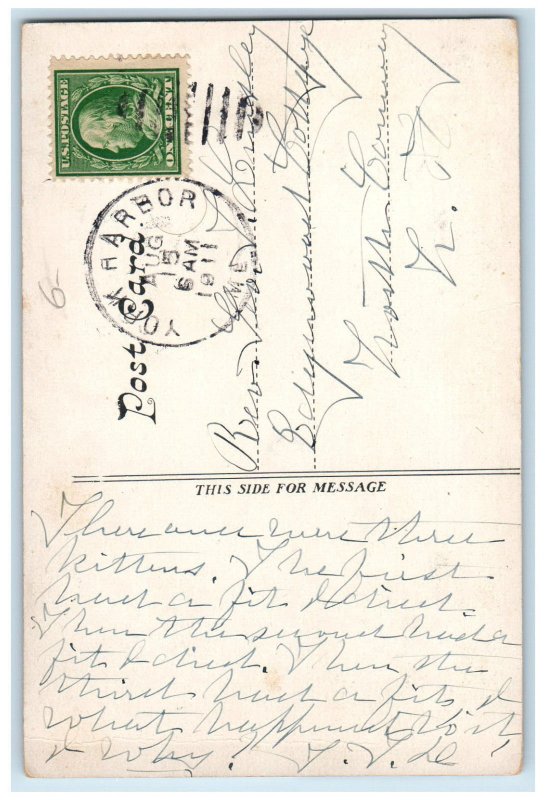 U.S. POSTAGE
ONE CENT
YORK HARBOR
AUG
15
6 AM
1911
ME
Post Card.
6-
Rev.
Edgewood Cottage
North Conway
N. H.
THIS SIDE FOR MESSAGE
There once were three
kittens. The first
had a fit & died.
Then the second had a
fit & died. Then the
third had a fit &
what happened to it
& why?